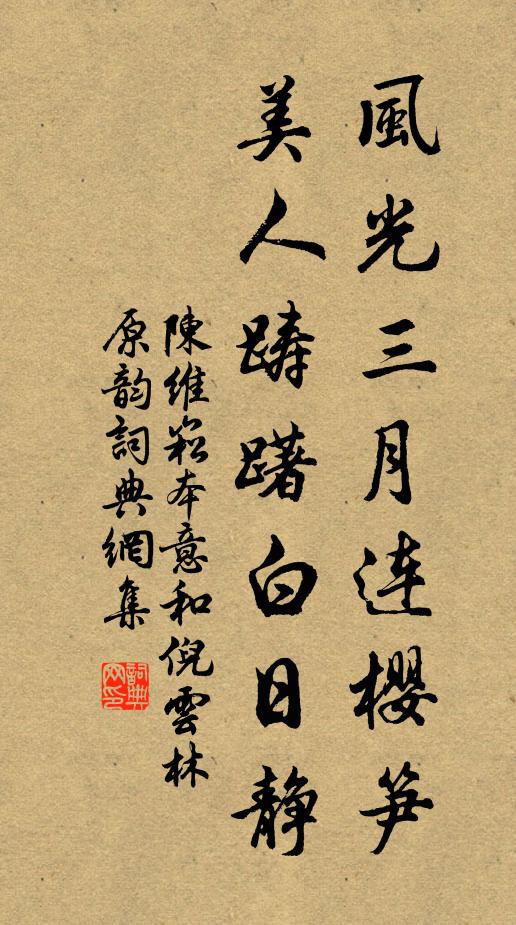 風光三月連櫻笋
美人踌躇白日静
陳維崧本意和倪雲林
原韵詞典網集
詞典網印